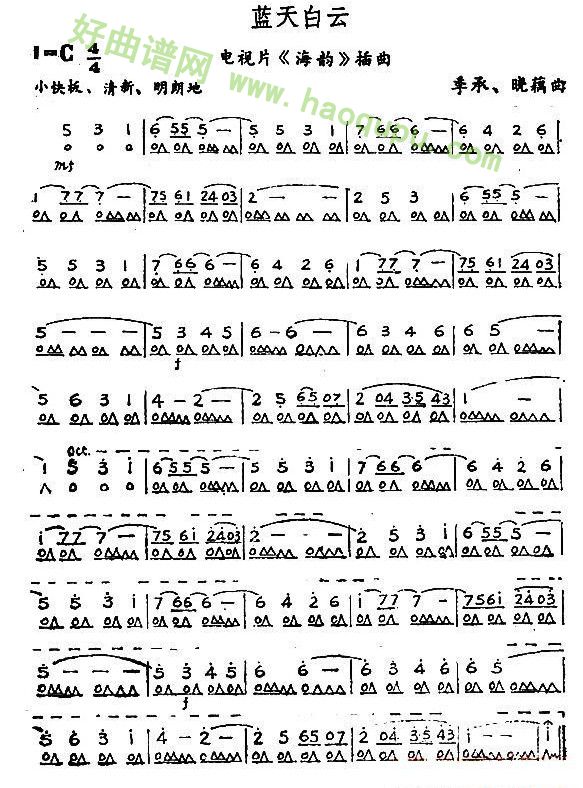 蓝天白云
1=C 4/4
电视片《海韵》插曲
小快板、清新、明朗地
季承、晓藕曲
好曲谱网
www.haoqupu.com
5 3 1 | 6 55 5 – | 5 5 3 1 | 7 66 6 – | 6 4 2 6 |
mf
1 77 7 – | 75 61 24 03 | 2 – – – | 2 5 3 | 6 55 5 – |
5 5 3 1 | 7 66 6 – | 6 4 2 6 | 1 77 7 – | 75 61 24 03 |
5 – – – | 5 3 4 5 | 6 – 6 – | 6 3 4 6 | 6 5 – |
f
5 6 3 1 | 4 – 2 – | 2 5 65 07 | 2 04 35 43 | 1 – |
Oct.
1 5 3 1 | 6 55 5 – | 5 5 3 1 | 7 66 6 | 6 4 2 6 |
1 77 7 – | 75 61 24 03 | 2 – – – | 5 2 3 1 | 6 55 5 – |
5 5 3 1 | 7 66 6 – | 6 4 2 6 | 1 77 7 – | 75 61 24 03 |
5 – – – | 5 3 4 5 | 6 6 – | 6 3 4 6 | 6 5 |
f
5 6 3 1 | 4 – 2 – | 2 5 65 03 | 2 04 35 43 | 1 – – | 1